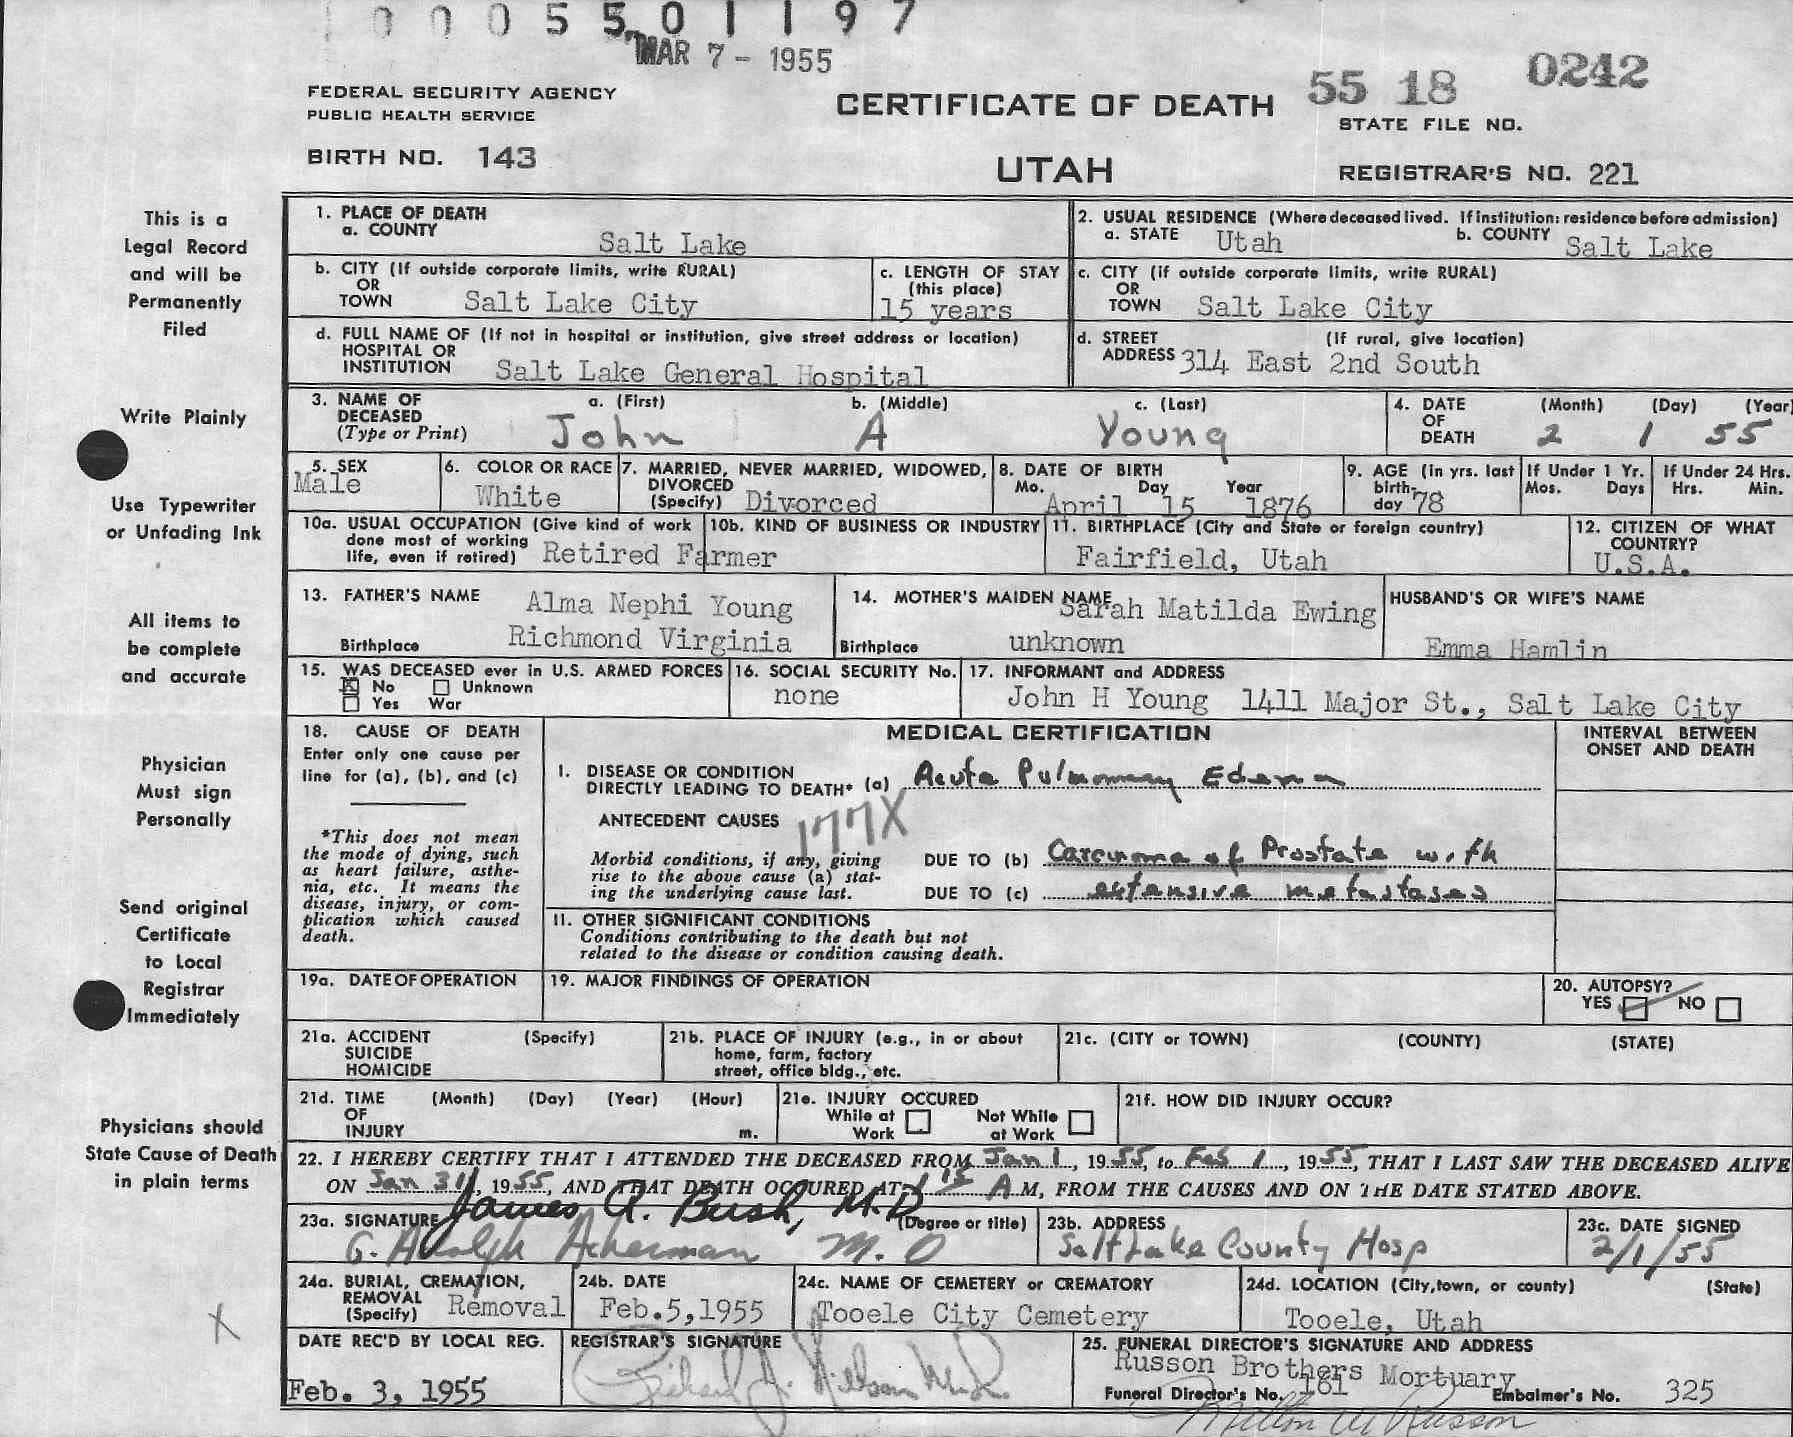 0 0 0 5 5 0 1 1 9 7
MAR 7 - 1955
FEDERAL SECURITY AGENCY
PUBLIC HEALTH SERVICE
BIRTH NO. 143
CERTIFICATE OF DEATH
UTAH
55 18 0242
STATE FILE NO.
REGISTRAR'S NO. 221
This is a
Legal Record
and will be
Permanently
Filed
Write Plainly
Use Typewriter
or Unfading Ink
All items to
be complete
and accurate
Physician
Must sign
Personally
Send original
Certificate
to Local
Registrar
Immediately
Physicians should
State Cause of Death
in plain terms
X
1. PLACE OF DEATH
a. COUNTY Salt Lake
2. USUAL RESIDENCE (Where deceased lived. If institution: residence before admission)
a. STATE Utah b. COUNTY Salt Lake
b. CITY (If outside corporate limits, write RURAL)
OR
TOWN Salt Lake City
c. LENGTH OF STAY
(this place)
15 years
c. CITY (if outside corporate limits, write RURAL)
OR
TOWN Salt Lake City
d. FULL NAME OF (If not in hospital or institution, give street address or location)
HOSPITAL OR
INSTITUTION Salt Lake General Hospital
d. STREET (If rural, give location)
ADDRESS 314 East 2nd South
3. NAME OF DECEASED (Type or Print)
a. (First) b. (Middle) c. (Last)
John A Young
4. DATE OF DEATH
(Month) (Day) (Year)
2 1 55
5. SEX
Male
6. COLOR OR RACE
White
7. MARRIED, NEVER MARRIED, WIDOWED,
DIVORCED
(Specify) Divorced
8. DATE OF BIRTH
Mo. Day Year
April 15 1876
9. AGE (in yrs. last
birth-
day 78
If Under 1 Yr.
Mos. Days
If Under 24 Hrs.
Hrs. Min.
10a. USUAL OCCUPATION (Give kind of work
done most of working
life, even if retired) Retired Farmer
10b. KIND OF BUSINESS OR INDUSTRY
11. BIRTHPLACE (City and State or foreign country)
Fairfield, Utah
12. CITIZEN OF WHAT
COUNTRY?
U.S.A.
13. FATHER'S NAME Alma Nephi Young
Birthplace Richmond Virginia
14. MOTHER'S MAIDEN NAME Sarah Matilda Ewing
Birthplace unknown
HUSBAND'S OR WIFE'S NAME
Emma Hamlin
15. WAS DECEASED ever in U.S. ARMED FORCES
X No Unknown
Yes War
16. SOCIAL SECURITY No.
none
17. INFORMANT and ADDRESS
John H Young 1411 Major St., Salt Lake City
18. CAUSE OF DEATH
Enter only one cause per
line for (a), (b), and (c)
*This does not mean
the mode of dying, such
as heart failure, asthe-
nia, etc. It means the
disease, injury, or com-
plication which caused
death.
MEDICAL CERTIFICATION
INTERVAL BETWEEN
ONSET AND DEATH
I. DISEASE OR CONDITION
DIRECTLY LEADING TO DEATH* (a) Acute Pulmonary Edema
ANTECEDENT CAUSES 177X
Morbid conditions, if any, giving
rise to the above cause (a) stat-
ing the underlying cause last.
DUE TO (b) Carcinoma of Prostate with
DUE TO (c) extensive metastases
II. OTHER SIGNIFICANT CONDITIONS
Conditions contributing to the death but not
related to the disease or condition causing death.
19a. DATE OF OPERATION
19. MAJOR FINDINGS OF OPERATION
20. AUTOPSY?
YES NO
21a. ACCIDENT (Specify)
SUICIDE
HOMICIDE
21b. PLACE OF INJURY (e.g., in or about
home, farm, factory
street, office bldg., etc.
21c. (CITY or TOWN) (COUNTY) (STATE)
21d. TIME (Month) (Day) (Year) (Hour)
OF
INJURY m.
21e. INJURY OCCURED
While at Work Not While at Work
21f. HOW DID INJURY OCCUR?
22. I HEREBY CERTIFY THAT I ATTENDED THE DECEASED FROM Jan 1, 1955, to Feb 1, 1955, THAT I LAST SAW THE DECEASED ALIVE
ON Jan 31, 1955, AND THAT DEATH OCCURED AT 1 15 A M, FROM THE CAUSES AND ON THE DATE STATED ABOVE.
James A. Bush, M.D
23a. SIGNATURE (Degree or title)
G. Adolph Ackerman M.D
23b. ADDRESS
Salt Lake County Hosp
23c. DATE SIGNED
2/1/55
24a. BURIAL, CREMATION,
REMOVAL
(Specify) Removal
24b. DATE
Feb.5,1955
24c. NAME OF CEMETERY or CREMATORY
Tooele City Cemetery
24d. LOCATION (City, town, or county) (State)
Tooele, Utah
DATE REC'D BY LOCAL REG.
Feb. 3, 1955
REGISTRAR'S SIGNATURE
Richard
25. FUNERAL DIRECTOR'S SIGNATURE AND ADDRESS
Russon Brothers Mortuary
Funeral Director's No. 161 Embalmer's No. 325
Milton W Russon